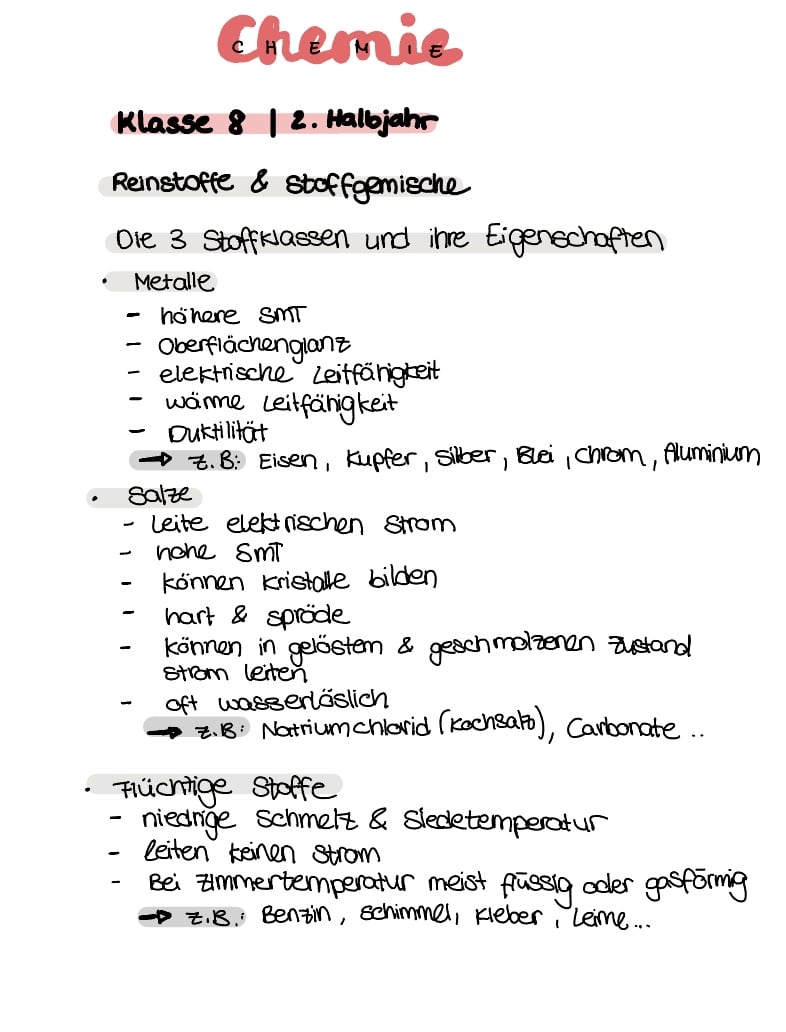 Chemie
CHEMIE
Klasse 8 | 2. Halbjahr
Reinstoffe & Stoffgemische
Die 3 Stoffklassen und ihre Eigenschaften
• Metalle
- höhere SMT
- Oberflächenglanz
- elektrische Leitfähigkeit
- wärme Leitfähigkeit
- Duktilität
→ z.B.: Eisen, Kupfer, Silber, Blei, Chrom, Aluminium
• Salze
- Leite elektrischen Strom
- hohe SMT
- können Kristalle bilden
- hart & spröde
- können in gelöstem & geschmolzenen Zustand
Strom leiten
- oft wasserläslich
→ z.B: Natriumchlorid (Kochsalz), Carbonate ..
• Flüchtige Stoffe
- niedrige Schmelz & Siedetemperatur
- leiten keinen Strom
- Bei Zimmertemperatur meist flüssig oder gasförmig
→ z.B.: Benzin, Schimmel, Kleber, Leime...